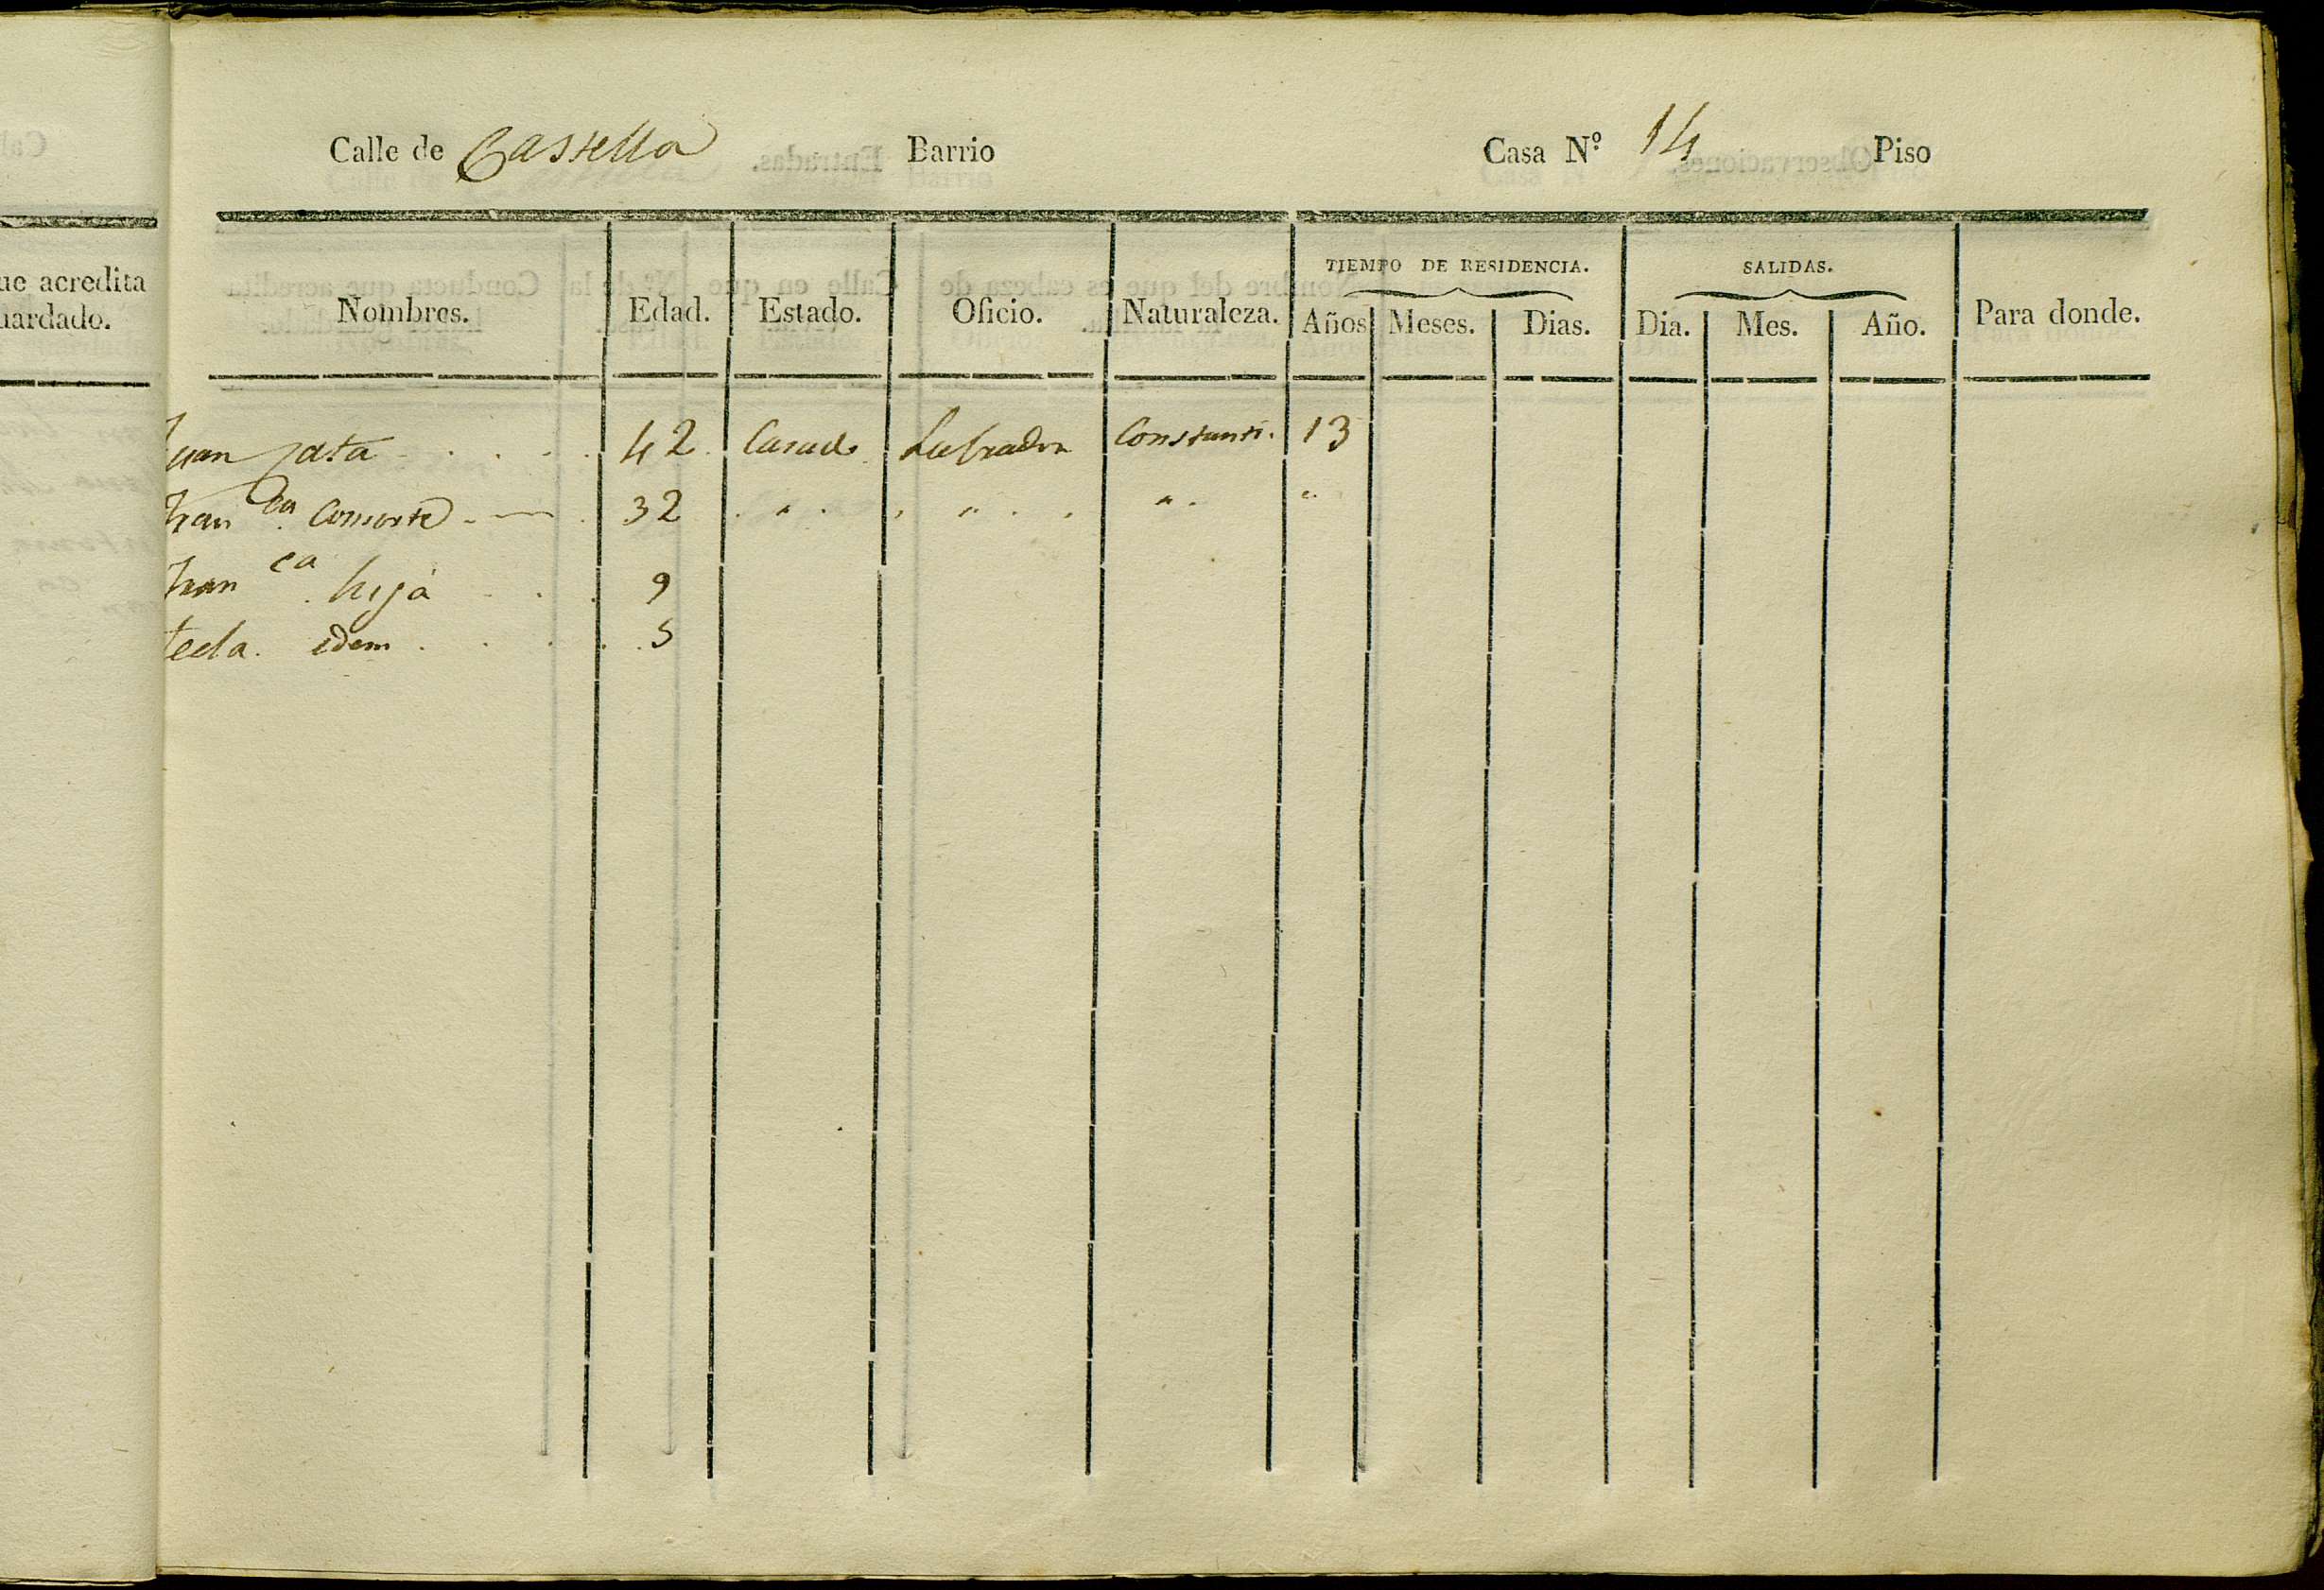 ue acredita
uardado.
Calle de Castella Barrio Casa Nº 14 Piso
TIEMPO DE RESIDENCIA. SALIDAS.
Nombres. Edad. Estado. Oficio. Naturaleza. Años Meses. Dias. Dia. Mes. Año. Para donde.
Juan 42. Casado Labrador Constanti. 13
Franca. Consorte 32 " " " "
Franca. hija 9
tecla. idem 5